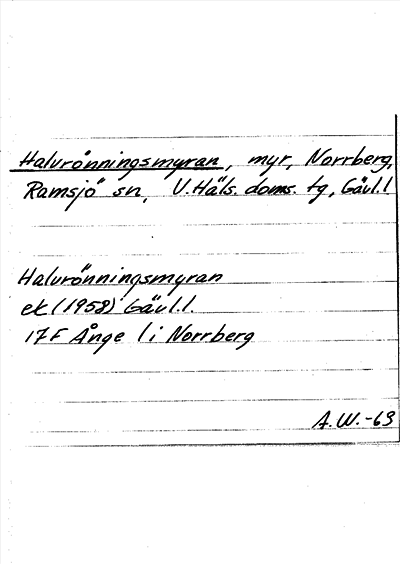 Halvrönningsmyran, myr, Norrberg,
Ramsjö sn, V.Häls. doms. tg, Gävl.l
Halvrönningsmyran
ek (1958) Gävl.l.
17F Ånge l i Norrberg
A.W.-63